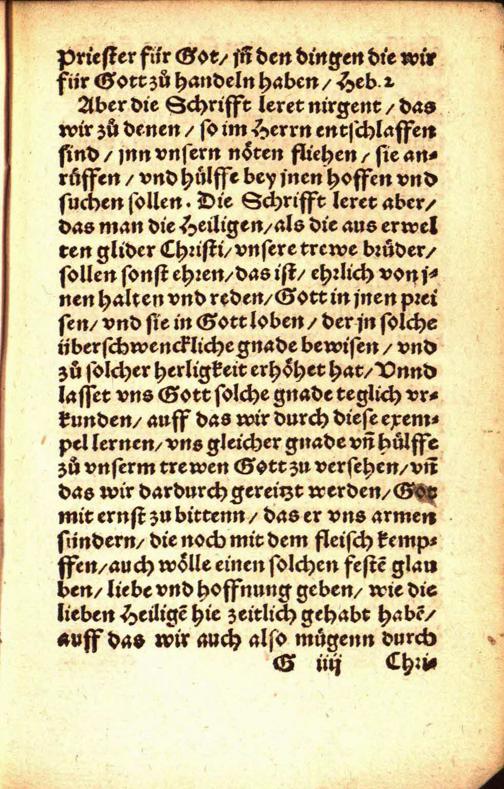 Priester für Got/ jn̄ den dingen die wir
für Gott zů handeln haben / Heb. 2
Aber die Schrifft leret nirgent / das
wir zů denen / so im Herrn entschlaffen
sind / jnn vnsern nöten fliehen / sie an⸗
rüffen / vnd hülffe bey jnen hoffen vnd
suchen sollen. Die Schrifft leret aber/
das man die Heiligen/als die aus erwel
ten glider Christi/vnsere trewe brüder/
sollen sonst ehren/das ist/ ehrlich von j⸗
nen halten vnd reden/Gott in jnen prei
sen/ vnd sie in Gott loben / der jn solche
überschwenckliche gnade bewisen / vnd
zů solcher herligkeit erhöhet hat/ Vnnd
lasset vns Gott solche gnade teglich vr⸗
kunden/ auff das wir durch diese exem⸗
pel lernen/vns gleicher gnade vn̄ hülffe
zů vnserm trewen Gott zu versehen/vn̄
das wir dardurch gereitzt werden/Got
mit ernst zu bittenn / das er vns armen
sündern/ die noch mit dem fleisch kemp⸗
ffen/auch wölle einen solchen festē glau
ben/ liebe vnd hoffnung geben/ wie die
lieben Heiligē hie zeitlich gehabt habē/
auff das wir auch also mügenn durch
G iiij Chri⸗